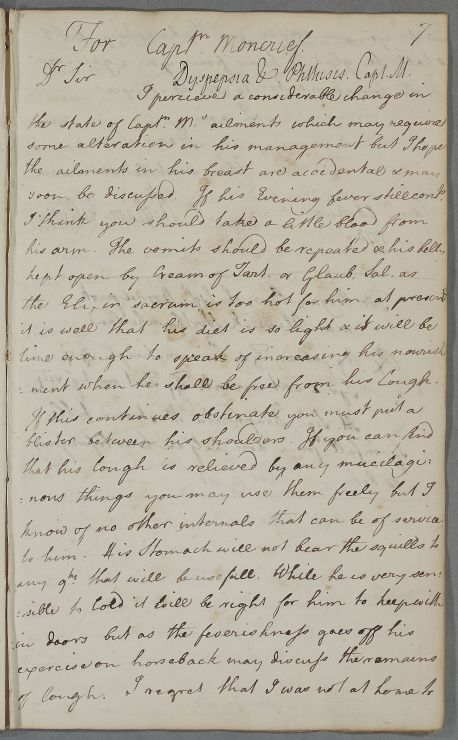 7.
For Capt.n Moncrief.
Dr Sir Dyspepsia & Phthisis. Capt. M.
I perceive a considerable change in
the state of Captn. M.s ailments which may require
some alteration in his management but I hope
the ailments in his breast are accidental & may
soon be discussed. If his Evening fever still cont.s
I think you should take a little blood from
his arm. The vomits should be repeated & his belly
kept open by Cream of Tart. or Glaub. Sal. as
the Elix. sacrum is too hot for him. at present
it is well that his diet is so light & it will be
time enough to speak of increasing his nourish
:ment when he shall be free from his Cough.
If this continues obstinate you must put a
blister between his shoulders. If you can find
that his Cough is relieved by any mucilagi:
:nous things you may use them freely but I
know of no other internals that can be of service
to him. His Stomach will not bear the squills to
any qty that will be usefull. While he is very sen:
:sible to Cold it will be right for him to keep with
:in doors but as the feverishness goes off his
exercise on horseback may discuss the remains
of Cough. I regret that I was not at home to